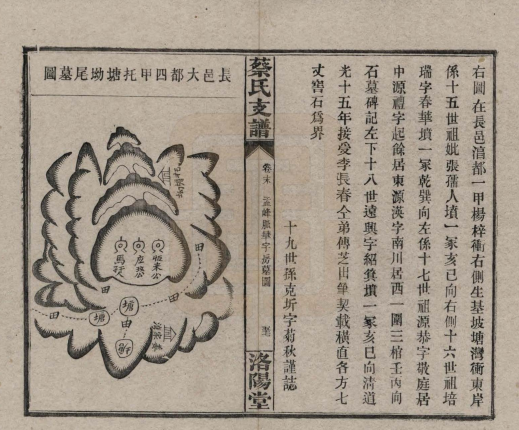 右圖在長邑涫都一甲楊梓衝右側生基坡塘灣衝東岸
係十五世祖妣張孺人墳一冢亥巳向右側十六世祖培
瑞字春華墳一冢乾巽向左係十七世祖源恭字敬庭居
中源禮字起餘居東源漢字南川居西一圍三棺壬丙向
石墓碑記左下十八世遠興字紹箕墳一冢亥巳向清道
光十五年接受李長春仝弟傳芝出筆契載橫直各方七
丈窖石為界
十九世孫克圻字菊秋謹誌
蔡氏支譜
卷末
房墓圖
洛陽堂
長邑大都四甲托塘坳尾墓圖
恆來公
彥琪公
馬孺人
田
田
田
塘
田
塘
田